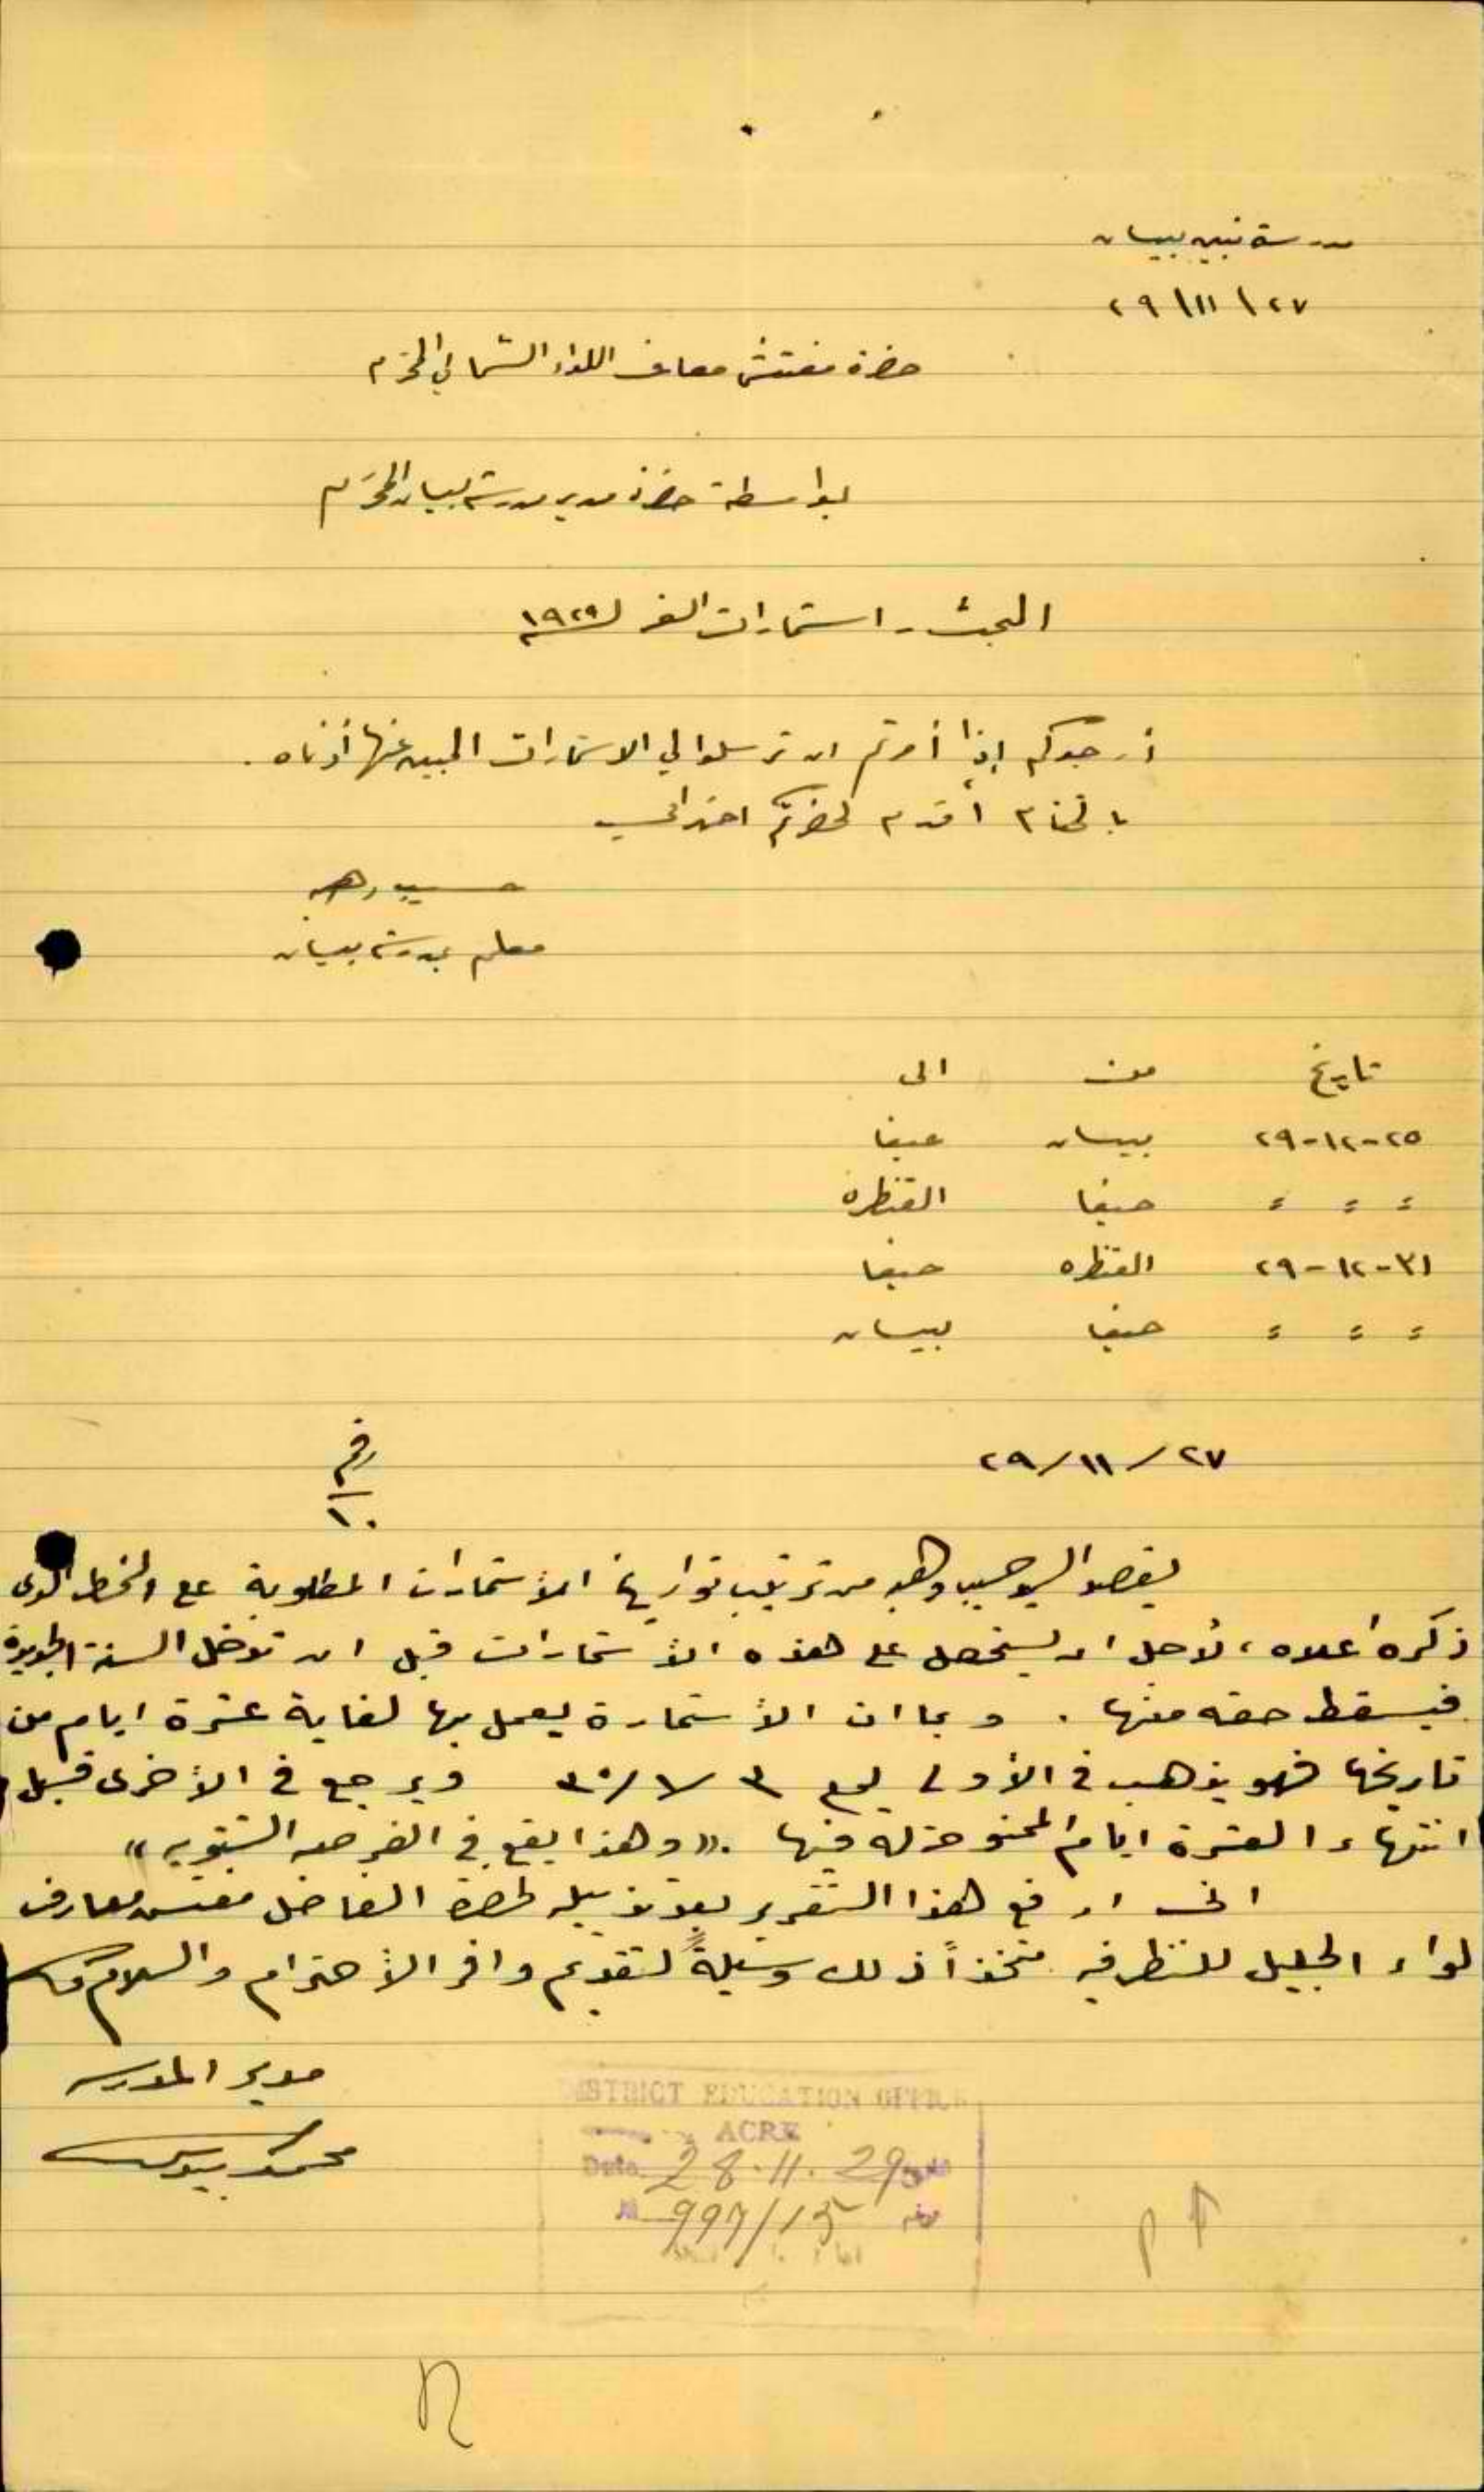 مدرسة بنين بيسان
٢٧ / ١١ / ٢٩
حضرة مفتش معارف اللواء الشمالي المحترم
بواسطة حضرة مدير مدرسة بيسان المحترم
البحث - استمارات السفر ل ١٩٢٩
أرجوكم إذا أمرتم ان ترسلوا لي الاستمارات المبين عنها أدناه .
بالختام أقدم لحضرتكم احترامي
حسيب وهبه
معلم بمدرسة بيسان
تاريخ من الى
٢٥-١٢-٢٩ بيسان حيفا
" " " حيفا القنطره
٣١-١٢-٢٩ القنطره حيفا
" " " حيفا بيسان
٢٧/١١/٢٩
رقم
١٠
يقصد السيد حسيب وهبه من ترتيب تواريخ الاستمارات المطلوبة على الخط الذي
ذكره اعلاه ، لأجل ان يستحصل على هذه الأستمارات قبل ان تدخل السنة الجديدة
فيسقط حقه منها . وبما ان الأستمارة يعمل بها لغاية عشرة ايام من
تاريخها فهو يذهب في الأولى ٣/١/٣٠ ويرجع في الأخرى قبل
انتهاء العشرة ايام الممنوحة له فيها . «وهذا يقع في الفرصه الشتويه»
اني ارفع هذا التقرير بعد تذييله لحضرة الفاضل مفتش معارف
لواء الجليل للنظر فيه متخذاً ذلك وسيلةً لتقديم وافر الأحترام والسلام
مدير المدرسه
محمد
DISTRICT EDUCATION OFFICE
ACRE
Date 28.11.29
997/15